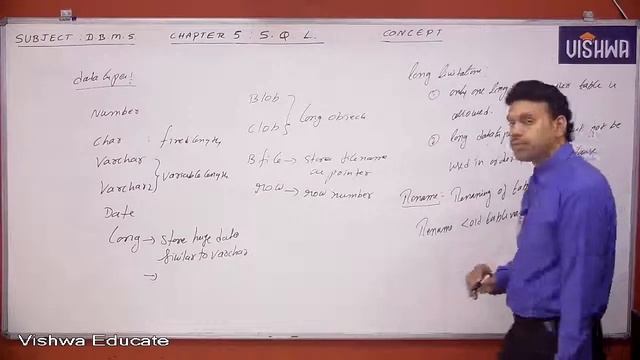 SUBJECT : D.B.M.S CHAPTER 5 : S. Q. L. CONCEPT
VISHWA
data types:
Number
Char : fixed length
Varchar
Varchar2 } Variable length
Date
Long → Store huge data
Similar to Varchar
→
Blob
Clob } Long objects
Bfile → Store filename
as pointer
row → row number
Long limitations:
① only one long table is
allowed.
② long datatype not be
used in order
Rename: Renaming of
Rename <old
Vishwa Educate